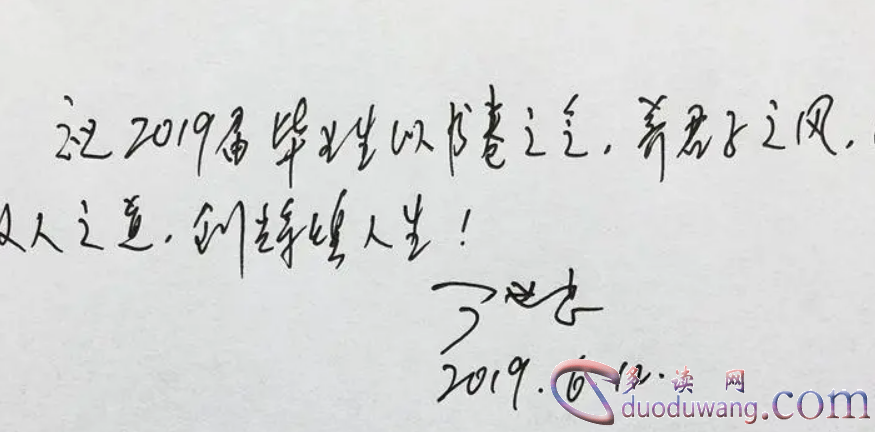 祝2019届毕业生以书卷之气,养君子之风,
人之道,创辉煌人生!
2019.6.12.
多读网
duoduwang.com